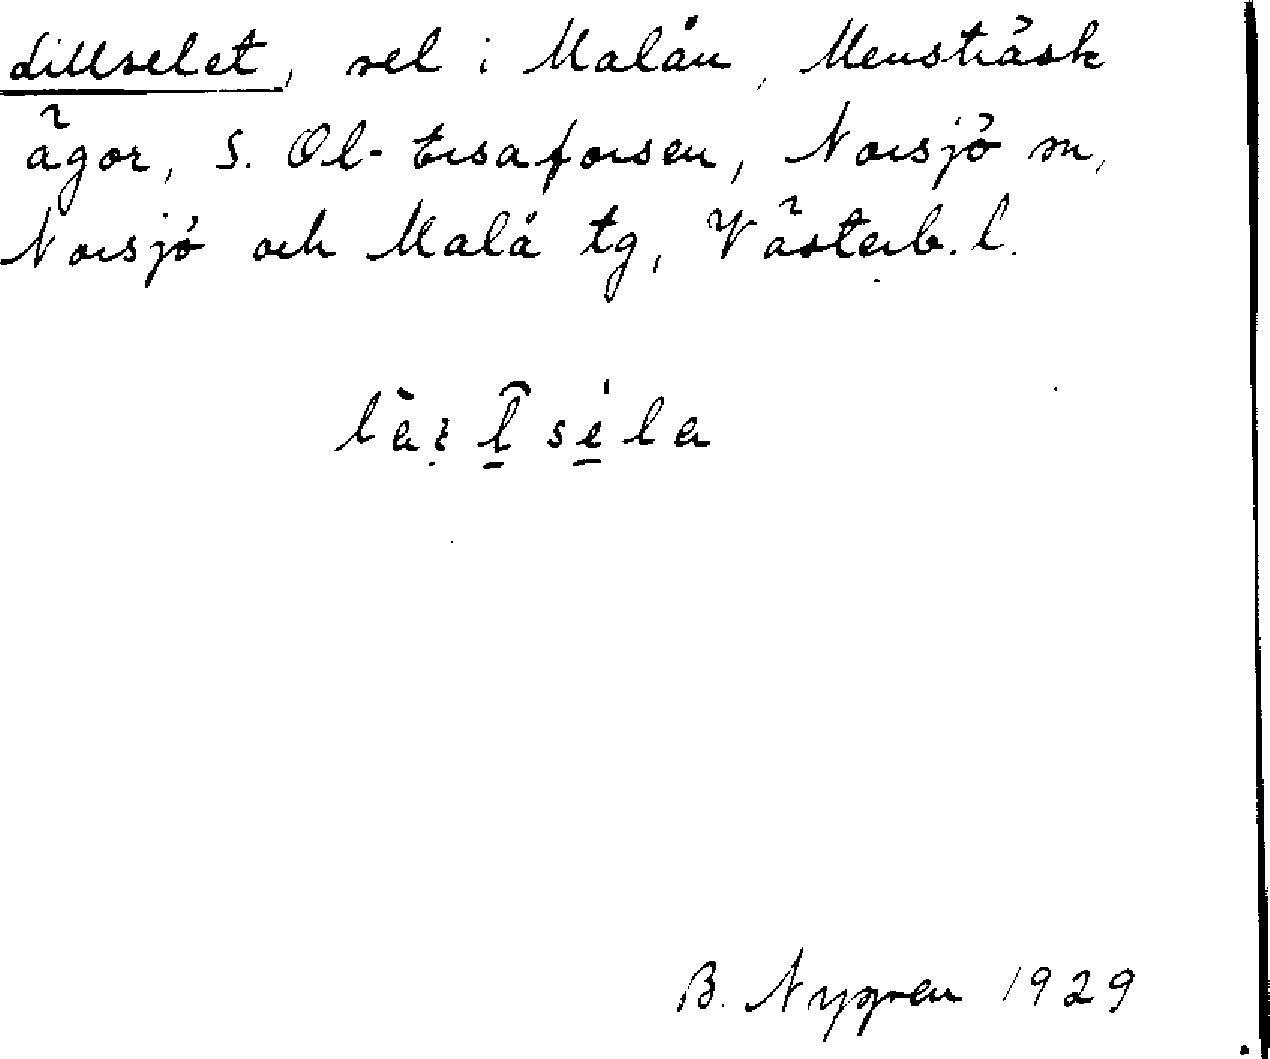 Lillselet, sel i Malån, Mensträsk
ägor, S. Ol-Ersaforsen, Norsjö sn,
Norsjö och Malå tg, Västerb. l.
B. Nygren 1929